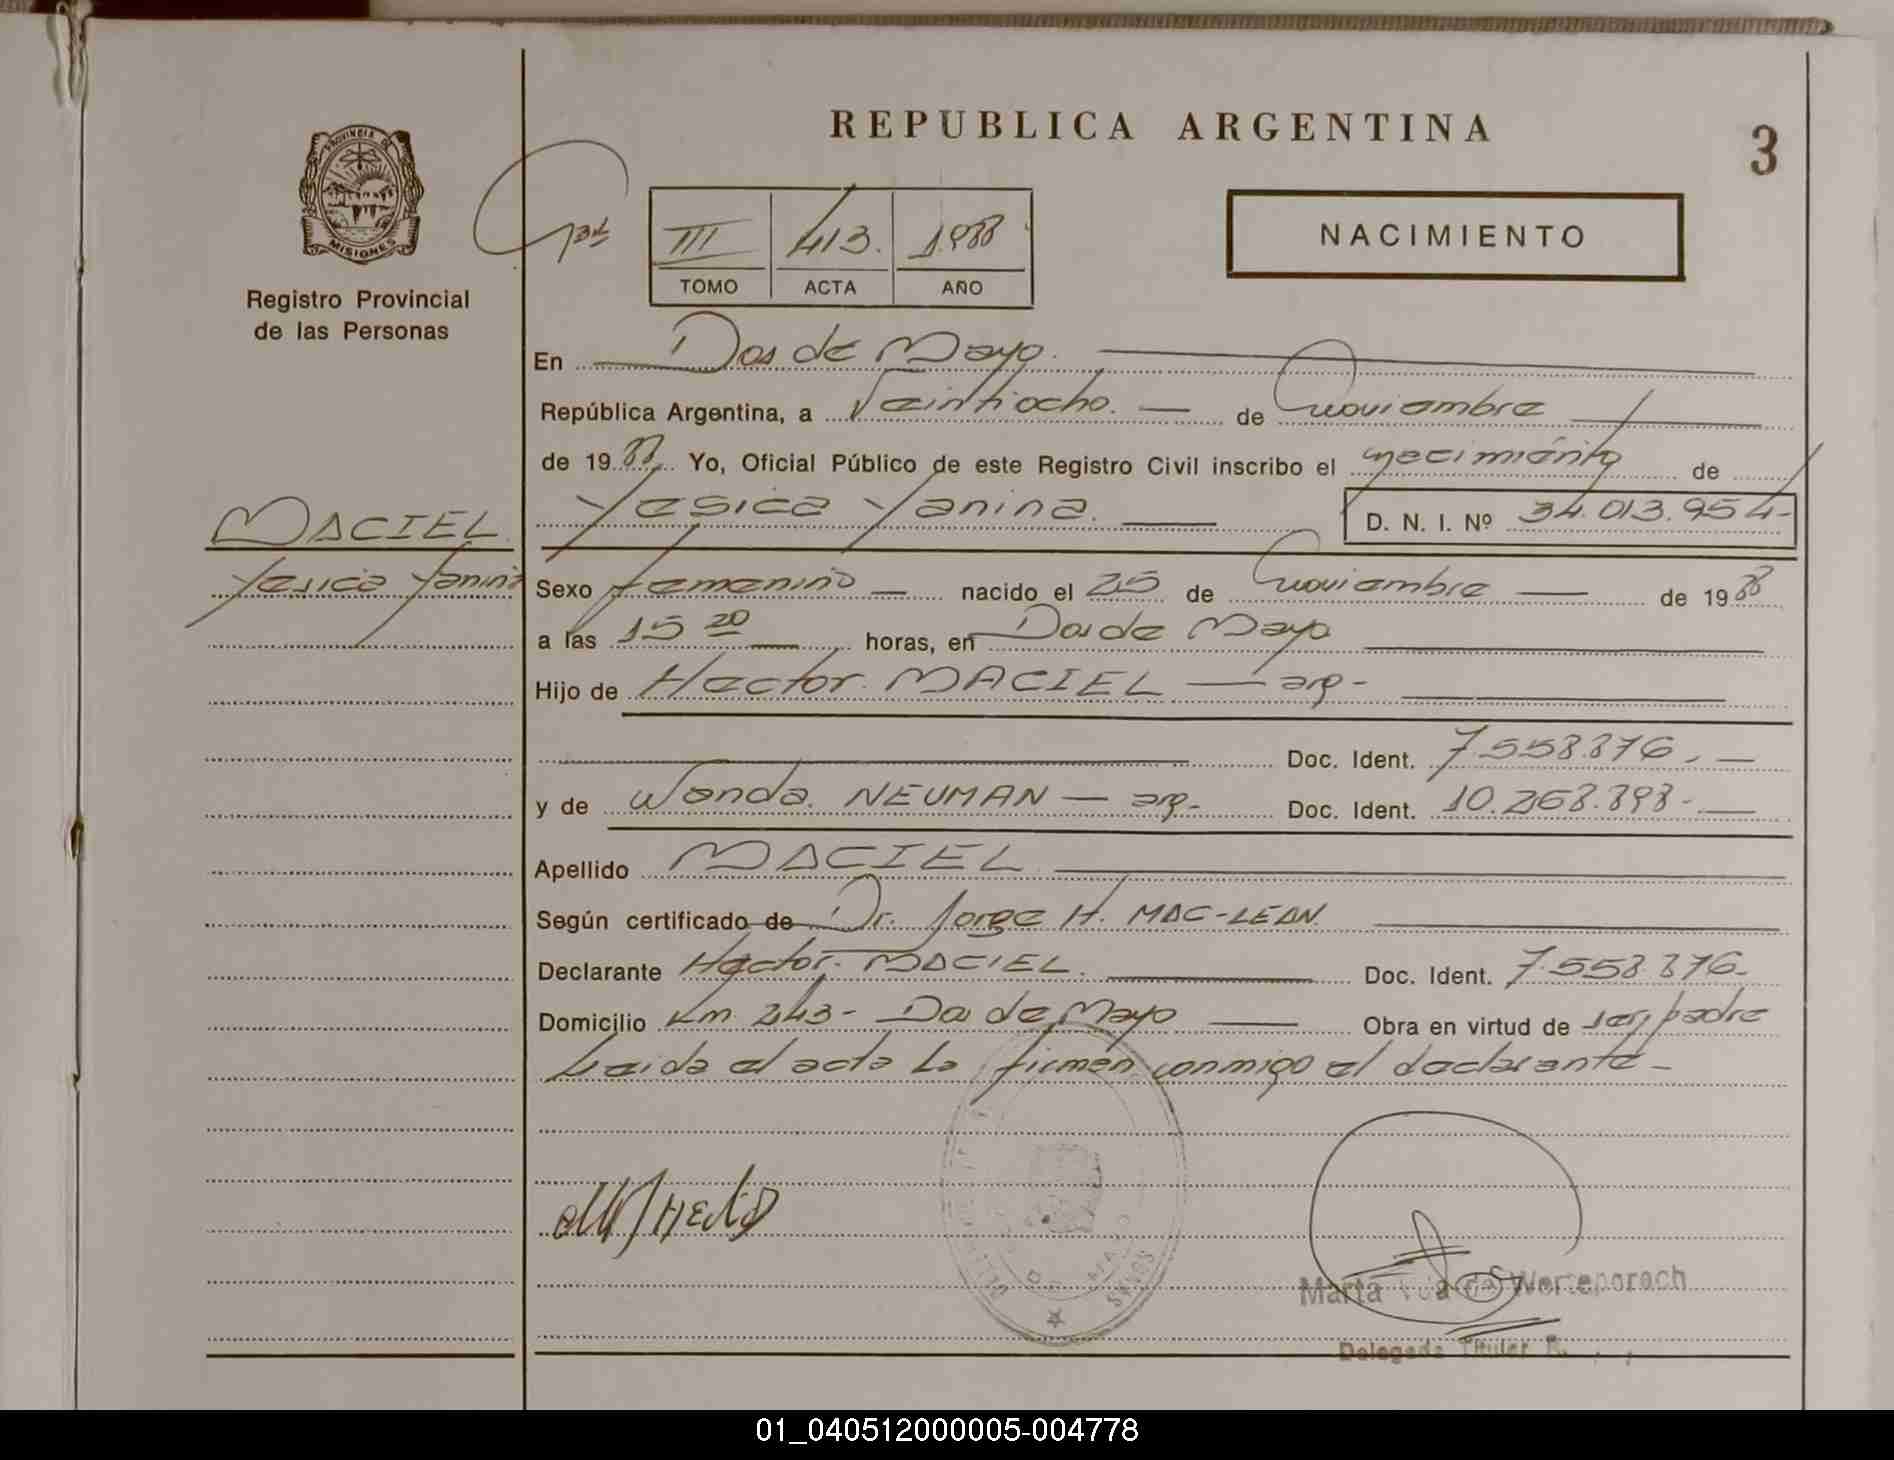 REPUBLICA ARGENTINA
3
PROVINCIA DE
MISIONES
Registro Provincial
de las Personas
III 413. 1.988
TOMO ACTA AÑO
NACIMIENTO
En Dos de Mayo.
República Argentina, a Veintiocho. de Noviembre
de 1988. Yo, Oficial Público de este Registro Civil inscribo el nacimiento de
Yesica Yanina. D. N. I. Nº 34.013.954-
MACIEL
Yesica Yanina
Sexo femenino nacido el 25 de Noviembre de 1988
a las 15 20 horas, en Dos de Mayo
Hijo de Hector MACIEL - arg-
Doc. Ident. 7.558.876.-
y de Wanda NEUMAN - arg- Doc. Ident. 10.268.898-
Apellido MACIEL
Según certificado de Dr. Jorge H. MAC-LEAN
Declarante Hector MACIEL. Doc. Ident. 7.558.876-
Domicilio Km 243- Dos de Mayo Obra en virtud de ser padre
Leida el acta La firman conmigo el declarante-
Marta de
Delegada Titular
01_040512000005-004778